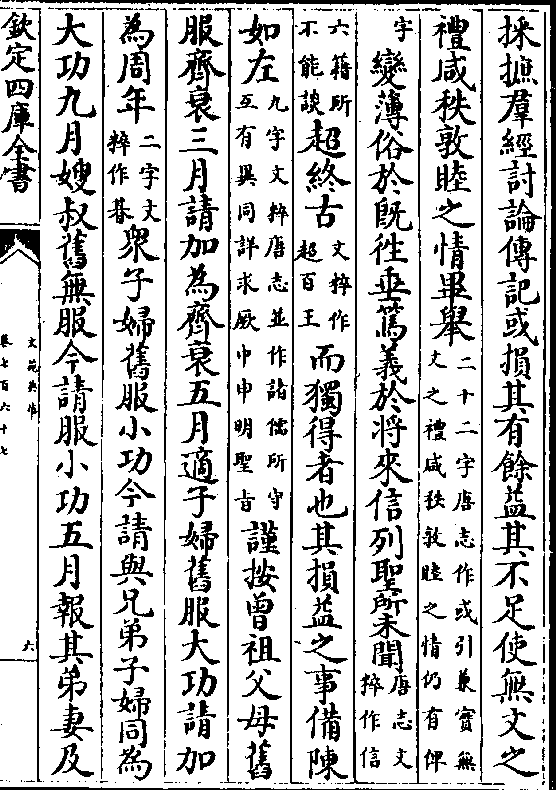 採摭羣經討論傳記或損其有餘益其不足使無文之
禮咸秩敦睦之情畢舉二十二字唐志作或引兼實無文之禮咸秩敦睦之情仍有俾
字變薄俗於既徃垂篤義於將來信列聖所未聞唐志文粹作信
六籍所不能談超終古文粹作超百王而獨得者也其損益之事備陳
如左九字文粹唐志並作諸儒所守互有異同詳求厥中申明聖旨謹按曾祖父母舊
服齊衰三月請加為齊衰五月適子婦舊服大功請加
為周年二字文粹作朞衆子婦舊服小功今請與兄弟子婦同為
大功九月嫂叔舊無服今請服小功五月報其弟妻及
欽定四庫全書
文苑英華
卷七百六十七
六